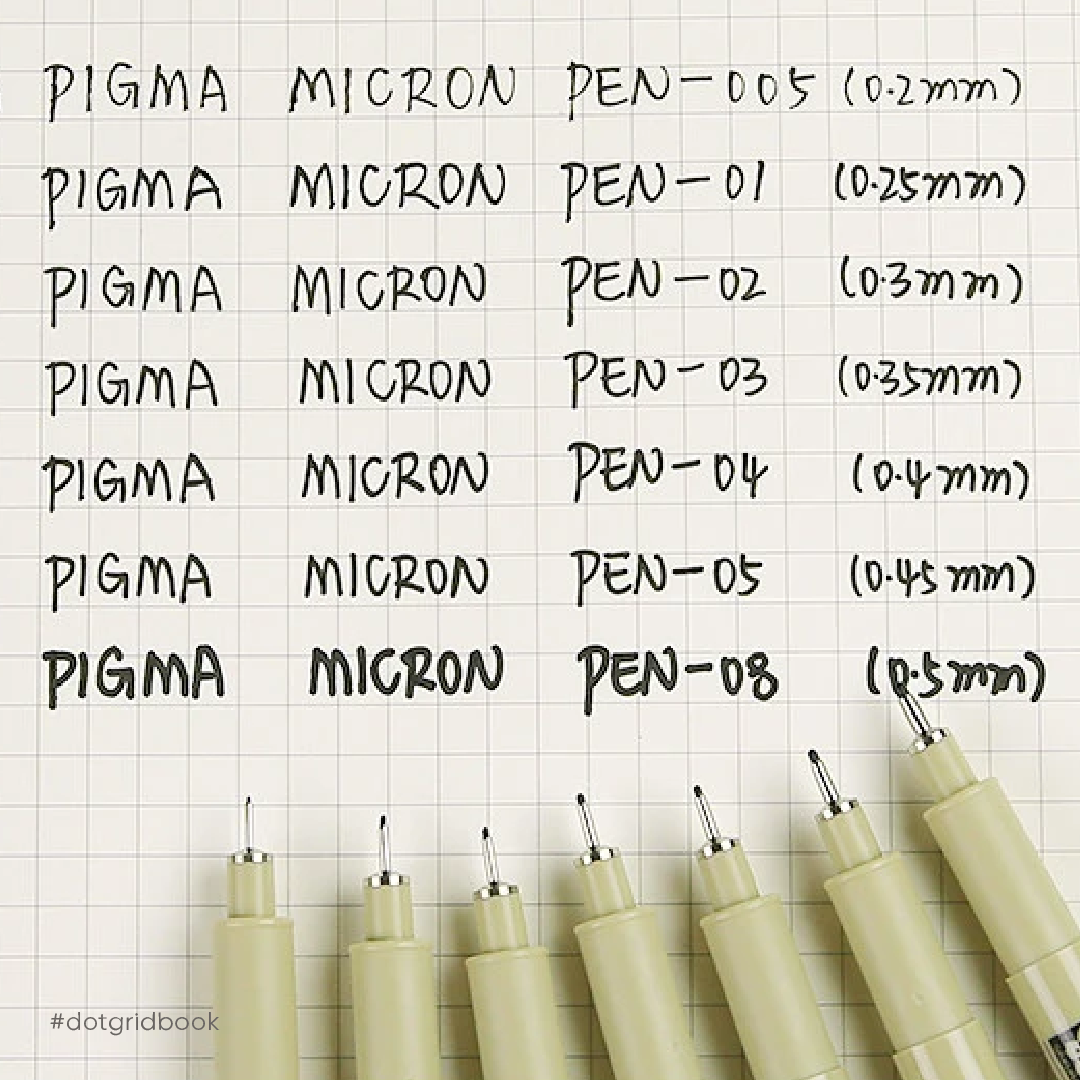 PIGMA MICRON PEN-005 (0.2mm)
PIGMA MICRON PEN-01 (0.25mm)
PIGMA MICRON PEN-02 (0.3mm)
PIGMA MICRON PEN-03 (0.35mm)
PIGMA MICRON PEN-04 (0.4mm)
PIGMA MICRON PEN-05 (0.45mm)
PIGMA MICRON PEN-08 (0.5mm)
#dotgridbook